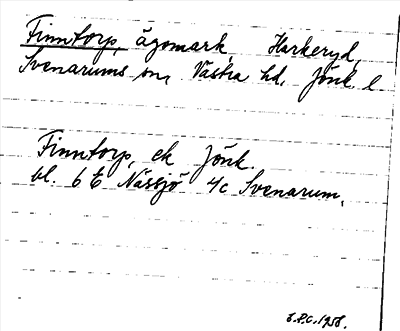 Finntorp, ägomark, Harkeryd,
Svenarums sn, Västra hd. Jönk. l
Finntorp, ek Jönk.
bl. 6 E Nässjö 4c Svenarum.
E.P.C. 1958.